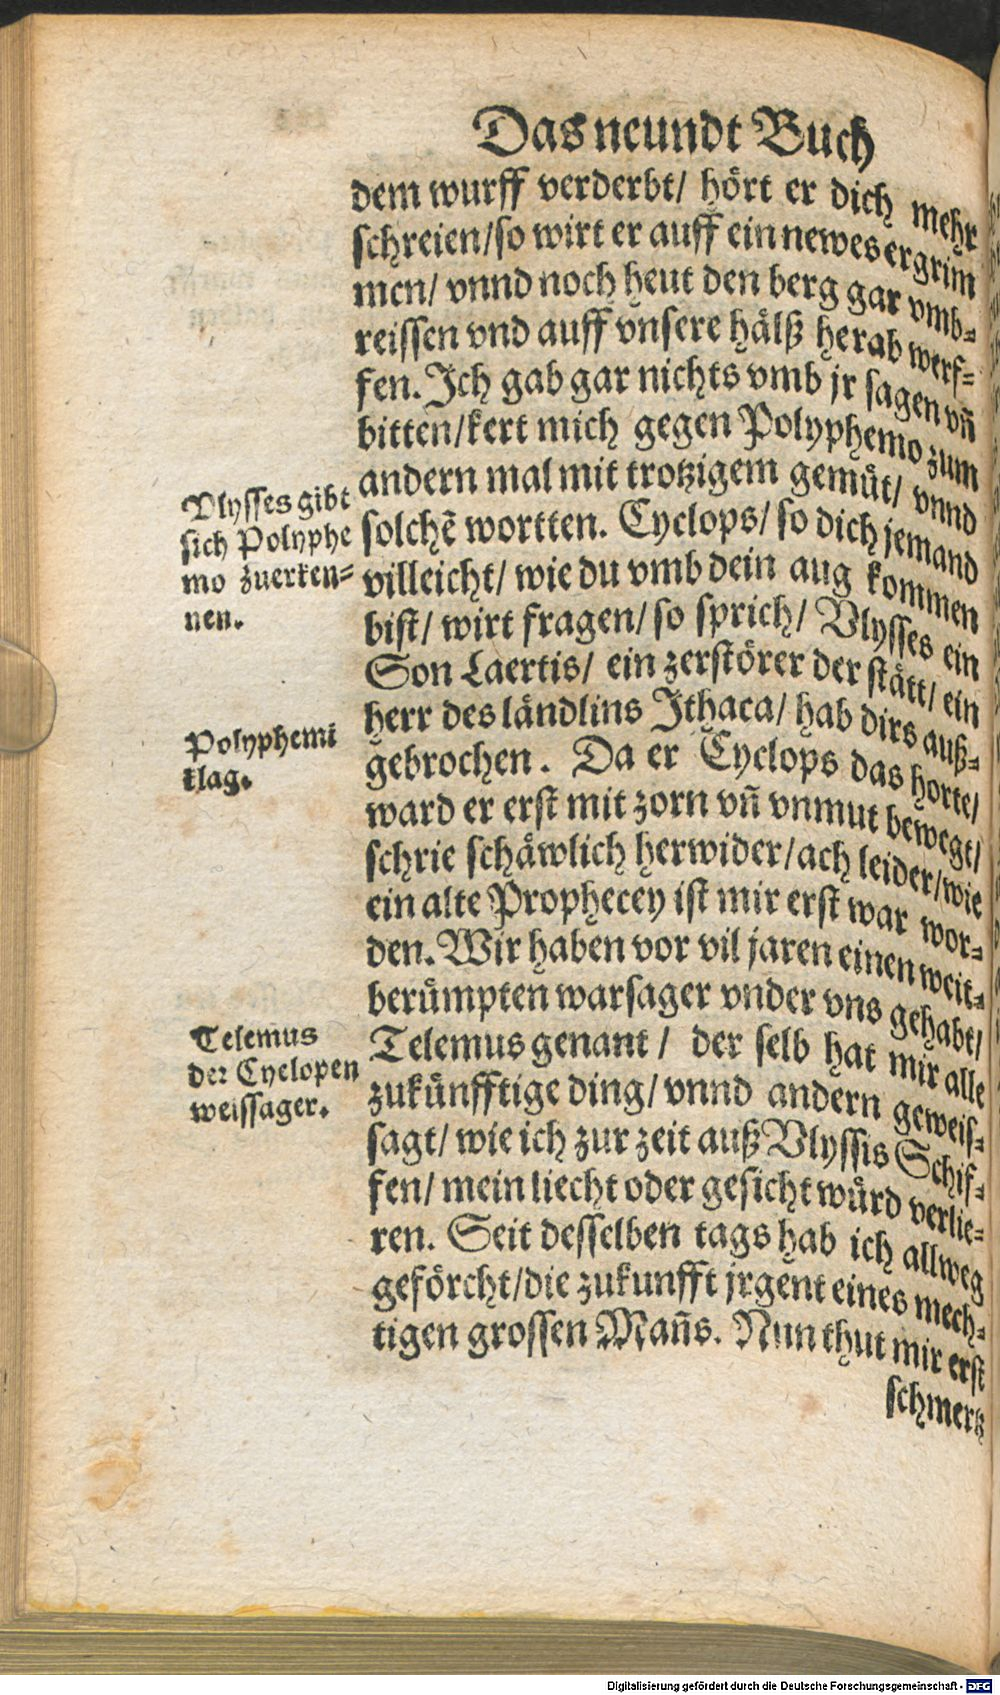 Das neundt Buch
dem wurff verderbt/ hört er dich mehr
schreien/so wirt er auff ein newes ergrim
men/ vnnd noch heut den berg gar vmb-
reissen vnd auff vnsere hälß herab werf-
fen. Ich gab gar nichts vmb jr sagen vñ
bitten/kert mich gegen Polyphemo zum
andern mal mit trotzigem gemüt/ vnnd
solchẽ wortten. Cyclops/ so dich jemand
villeicht/ wie du vmb dein aug kommen
bist/ wirt fragen/ so sprich/ Vlysses ein
Son Laertis/ ein zerstörer der stätt/ ein
herr des ländlins Ithaca/ hab dirs auß-
gebrochen. Da er Cyclops das horte/
ward er erst mit zorn vñ vnmut bewegt/
schrie schäwlich herwider/ach leider/wie
ein alte Prophecey ist mir erst war wor-
den. Wir haben vor vil jaren einen weit-
berümpten warsager vnder vns gehabt/
Telemus genant / der selb hat mir alle
zukünfftige ding/ vnnd andern geweis-
sagt/ wie ich zur zeit auß Vlyssis Schif-
fen/ mein liecht oder gesicht würd verlie-
ren. Seit desselben tags hab ich allweg
geförcht/die zukunfft jrgent eines mech-
tigen grossen Mañs. Nun thut mir erst
schmertz
Vlysses gibt
sich Polyphe
mo zuerken-
nen.
Polyphemi
klag.
Telemus
der Cyclopen
weissager.
Digitalisierung gefördert durch die Deutsche Forschungsgemeinschaft - DFG